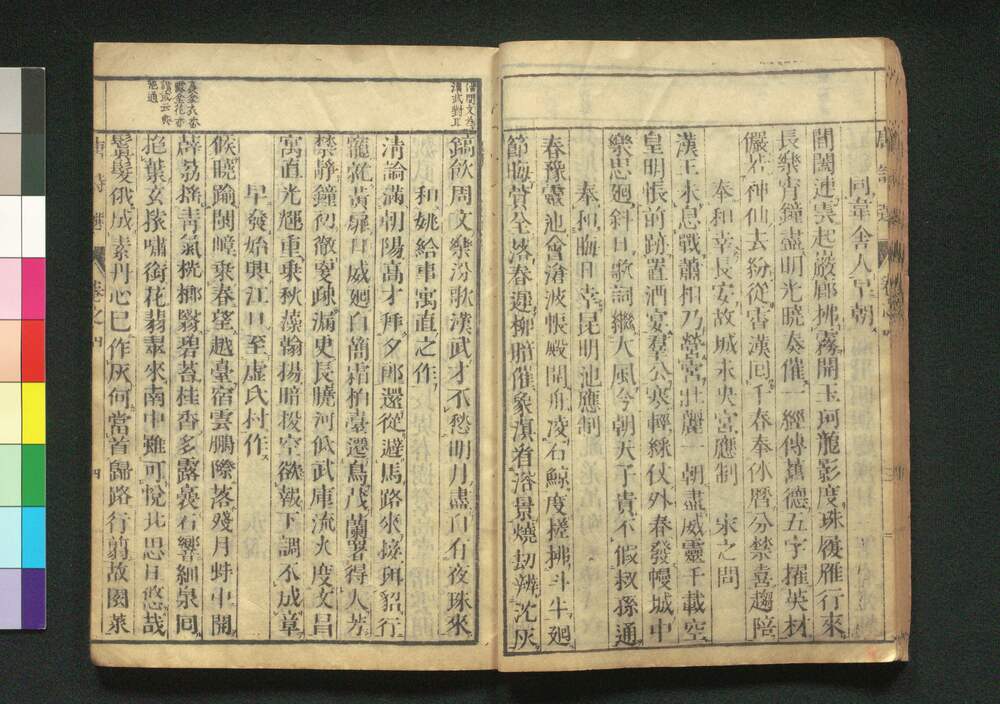 同韋舍人早朝
閶闔連雲起巖廊拂霧開玉珂龍影度珠履雁行來
長樂宵鐘盡明光曉奏催一經傳舊德五字擢英材
儼若神仙去紛從霄漢回千春奉休曆分禁喜趨陪
奉和幸長安故城未央宮應制 宋之問
漢王未息戰蕭相乃營宮壯麗一朝盡威靈千載空
皇明悵前跡置酒宴羣公寒輕綵仗外春發幔城中
樂思廻斜日歌詞繼大風今朝天子貴不假叔孫通
奉和晦日幸昆明池應制
春豫靈池會滄波帳殿開舟凌石鯨度槎拂斗牛廻
節晦蓂全落春遲柳暗催象滇看浴景燒劫辨沈灰
鎬飲周文樂汾歌漢武才不愁明月盡自有夜珠來
和姚給事寓直之作
清論滿朝陽高才拜夕郎還從避馬路來接珥貂行
寵就黃扉日威廻白簡霜柏臺遷鳥茂蘭署得人芳
禁靜鐘初徹更疎漏史長曉河低武庫流火度文昌
寓直光輝重乘秋藻翰揚暗投空欲報下調不成章
早發始興江口至虛氏村作
候曉踰閩嶂乘春望越臺宿雲鵬際落殘月蚌中開
薜荔搖青氣桄榔翳碧苔桂香多露裛石響細泉回
抱葉玄猿嘯銜花翡翠來南中雖可悅北思日悠哉
鬒髮俄成素丹心已作灰何當首歸路行剪故園萊
唐詩選 卷之四 四